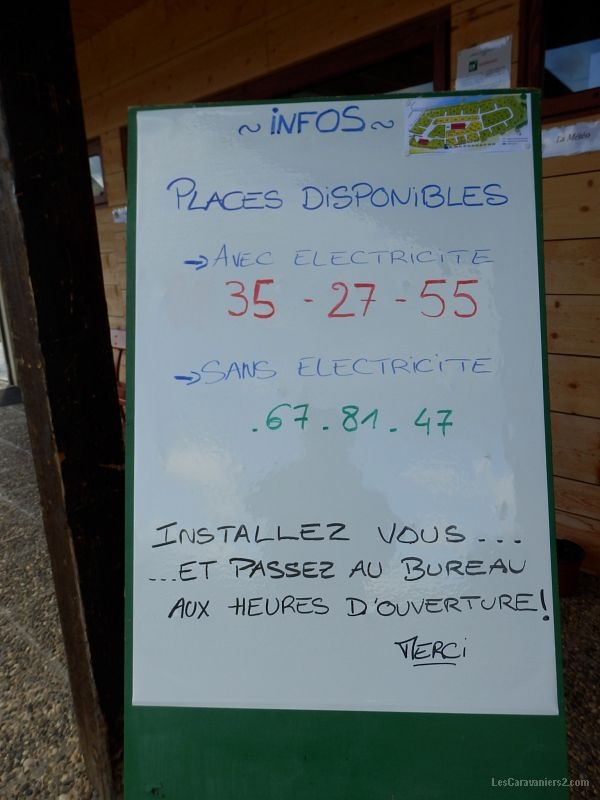 ~ INFOS ~
La Météo
PLACES DISPONIBLES
→ AVEC ELECTRICITE
35 - 27 - 55
→ SANS ELECTRICITE
. 67 . 81 . 47
INSTALLEZ VOUS ...
... ET PASSEZ AU BUREAU
AUX HEURES D'OUVERTURE !
MERCI
LesCaravaniers2.com